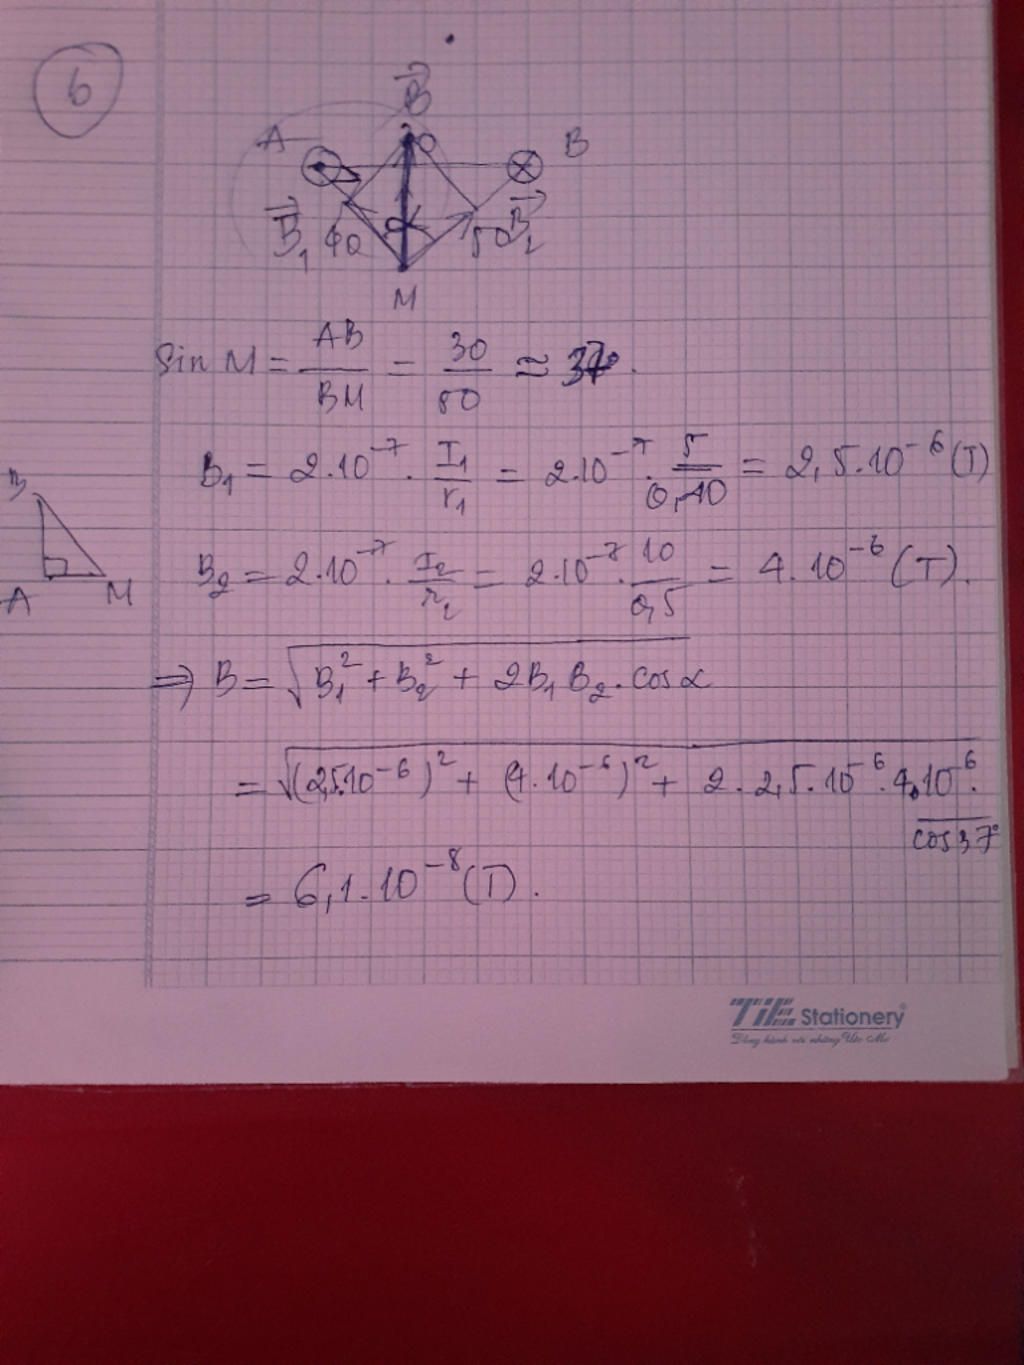 6
B⃗
A
B
B⃗₁ 40
50 B⃗₂
α
M
Sin M = AB/BM = 30/50 ≈ 37°.
B₁ = 2.10⁻⁷ . I₁/r₁ = 2.10⁻⁷ . 5/0,40 = 2,5.10⁻⁶ (T)
B
A M
B₂ = 2.10⁻⁷ . I₂/r₂ = 2.10⁻⁷ . 10/0,5 = 4.10⁻⁶ (T).
⇒ B = √(B₁² + B₂² + 2B₁B₂.cosα
= √((2,5.10⁻⁶)² + (4.10⁻⁶)² + 2.2,5.10⁻⁶.4.10⁻⁶.
cos37°
= 6,1.10⁻⁸ (T).
TiE Stationery®
Đồng hành với những Ước Mơ